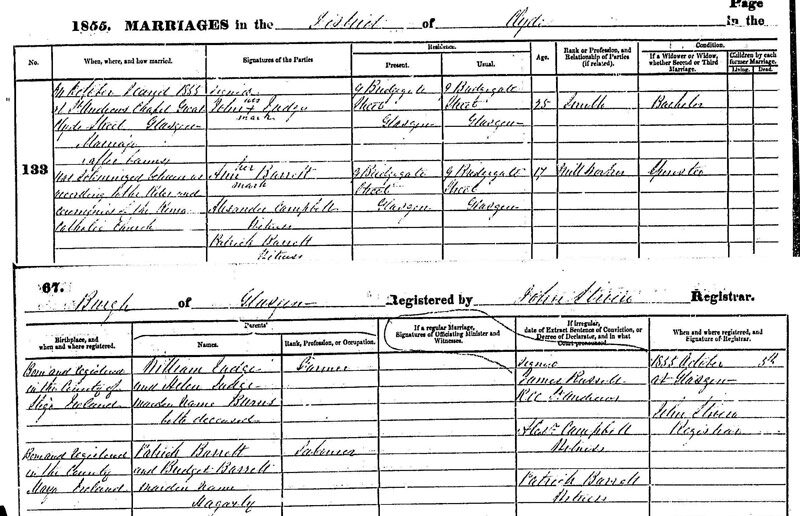 Page
1855. MARRIAGES in the District of Clyde in the
No.
When, where, and how married.
Signatures of the Parties
Residence.
Present.
Usual.
Age.
Rank or Profession, and Relationship of Parties (if related).
Condition.
If a Widower or Widow, whether Second or Third Marriage.
Children by each former Marriage.
Living.
Dead.
133
October Second 1855
St Andrews Chapel Great
Clyde Street Glasgow
Marriage
after banns
was Solemnized between us
according to the Rites and
ceremonies of the Roman
Catholic Church
Signed
John his x mark Judge
Ann her x mark Barrett
Alexander Campbell
Witness
Patrick Barrett
Witness
9 Bridgegate
Street
Glasgow
9 Bridgegate
Street
Glasgow
25
Smith
Bachelor
9 Bridgegate
Street
Glasgow
9 Bridgegate
Street
Glasgow
17
Mill Worker
Spinster
67.
Burgh of Glasgow Registered by John Registrar.
Birthplace, and when and where registered.
Parents'
Names.
Rank, Profession, or Occupation.
If a regular Marriage, Signatures of Officiating Minister and Witnesses.
If irregular, date of Extract Sentence of Conviction, or Decree of Declarator, and in what Court pronounced.
When and where registered, and Signature of Registrar.
Born and registered
in the County of
Sligo Ireland
William Judge
and Helen Judge
maiden Name Burns
both deceased
Farmer
Signed
James Russell
R.C.C. St Andrews
Alexr Campbell
Witness
Patrick Barrett
Witness
1855 October 5th
at Glasgow
John
Registrar
Born and registered
in the County
Mayo Ireland
Patrick Barrett
and Bridget Barrett
maiden name
Labourer